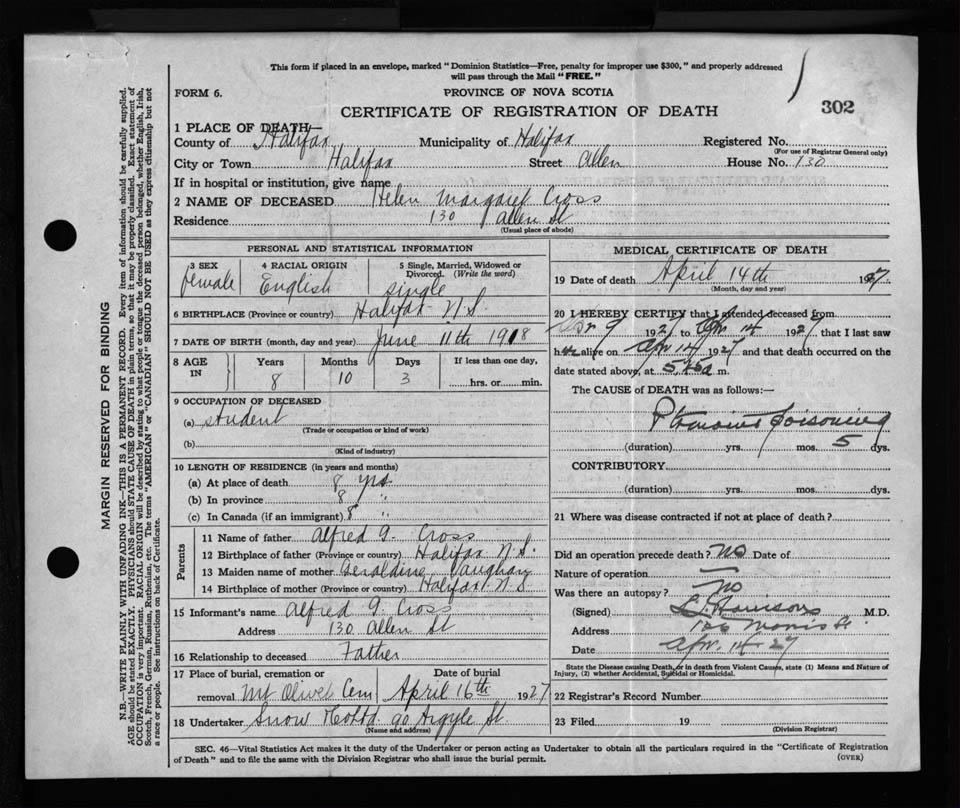 This form if placed in an envelope, marked "Dominion Statistics—Free, penalty for improper use $300," and properly addressed
will pass through the Mail "FREE."
FORM 6.
PROVINCE OF NOVA SCOTIA
302
CERTIFICATE OF REGISTRATION OF DEATH
1 PLACE OF DEATH—
County of Halifax Municipality of Halifax Registered No.
(For use of Registrar General only)
City or Town Halifax Street Allen House No. 130
If in hospital or institution, give name
2 NAME OF DECEASED Helen Margaret Cross
Residence 130 Allen St
(Usual place of abode)
PERSONAL AND STATISTICAL INFORMATION
3 SEX 4 RACIAL ORIGIN 5 Single, Married, Widowed or
Divorced. (Write the word)
female English single
6 BIRTHPLACE (Province or country) Halifax N.S.
7 DATE OF BIRTH (month, day and year) June 11th 1918
8 AGE IN Years Months Days If less than one day,
8 10 3 hrs. or min.
9 OCCUPATION OF DECEASED
(a) student
(Trade or occupation or kind of work)
(b)
(Kind of industry)
10 LENGTH OF RESIDENCE (in years and months)
(a) At place of death 8 yrs
(b) In province 8 "
(c) In Canada (if an immigrant) 8 "
Parents
11 Name of father Alfred G. Cross
12 Birthplace of father (Province or country) Halifax N.S.
13 Maiden name of mother Geraldine Vaughan
14 Birthplace of mother (Province or country) Halifax N.S
15 Informant's name Alfred G. Cross
Address 130 Allen St
16 Relationship to deceased Father
17 Place of burial, cremation or Date of burial
removal Mt Olivet Cem April 16th 1927
18 Undertaker Snow & Co Ltd 90 Argyle St.
(Name and address)
MEDICAL CERTIFICATE OF DEATH
19 Date of death April 14th 1927
(Month, day and year)
20 I HEREBY CERTIFY that I attended deceased from
Apr 9 1927 to Apr 14 1927, that I last saw
her alive on Apr 14 1927 and that death occurred on the
date stated above, at 5, a m.
The CAUSE OF DEATH was as follows:—
Ptomaine poisoning
(duration) yrs. mos. 5 dys.
CONTRIBUTORY
(duration) yrs. mos. dys.
21 Where was disease contracted if not at place of death?
Did an operation precede death? No Date of
Nature of operation —
Was there an autopsy? No
(Signed) M.D.
Address 126 Morris St.
Date Apr. 14 - 27
State the Disease causing Death, or in death from Violent Causes, state (1) Means and Nature of
Injury, (2) whether Accidental, Suicidal or Homicidal.
22 Registrar's Record Number
23 Filed 19
(Division Registrar)
SEC. 46—Vital Statistics Act makes it the duty of the Undertaker or person acting as Undertaker to obtain all the particulars required in the "Certificate of Registration
of Death" and to file the same with the Division Registrar who shall issue the burial permit.
(OVER)
MARGIN RESERVED FOR BINDING
N.B.—WRITE PLAINLY WITH UNFADING INK—THIS IS A PERMANENT RECORD. Every item of information should be carefully supplied.
AGE should be stated EXACTLY. PHYSICIANS should STATE CAUSE OF DEATH in plain terms, so that it may be properly classified. Exact statement of
OCCUPATION is very important. RACIAL ORIGIN will be described by stating to what people or tongue the deceased person belonged, whether English, Irish,
Scotch, French, German, Russian, Ruthenian, etc. The terms "AMERICAN" or "CANADIAN" SHOULD NOT BE USED as they express citizenship but not
a race or people. See instructions on back of Certificate.